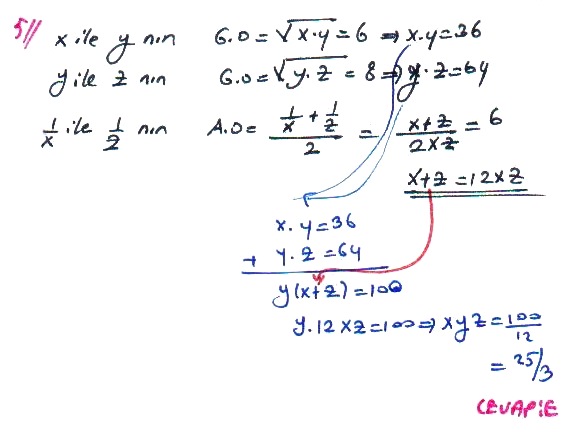 5// x ile y nin G.O = √x.y = 6 ⇒ x.y = 36
y ile z nin G.O = √y.z = 8 ⇒ y.z = 64
1/x ile 1/z nin A.O = (1/x + 1/z)/2 = (x+z)/(2xz) = 6
x+z = 12xz
x.y = 36
+ y.z = 64
y(x+z) = 100
y.12xz = 100 ⇒ xyz = 100/12
= 25/3
CEVAP:E